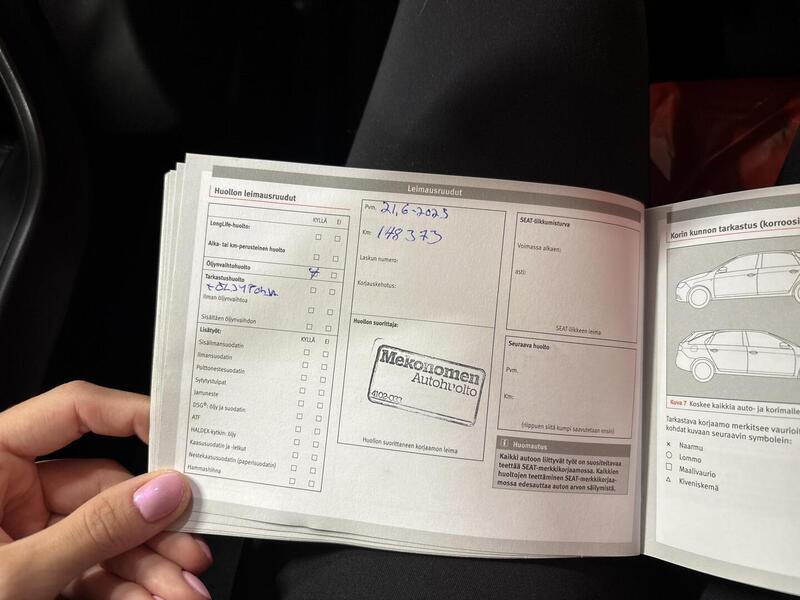 Leimausruudut
Huollon leimausruudut
KYLLÄ EI
LongLife-huolto:
Aika- tai km-perusteinen huolto
Öljynvaihtohuolto
Tarkastushuolto
Ilman öljynvaihtoa
Sisältäen öljynvaihdon
Lisätyöt:
KYLLÄ EI
Sisäilmansuodatin
Ilmansuodatin
Polttonestesuodatin
Sytytystulpat
Jarruneste
DSG®: öljy ja suodatin
ATF
HALDEX-kytkin: öljy
Kaasusuodatin ja -letkut
Nestekaasusuodatin (paperisuodatin)
Hammashihna
Pvm. 21,6-2023
Km: 148373
Laskun numero:
Korjauskehotus:
Huollon suorittaja:
Mekonomen
Autohuolto
Huollon suorittaneen korjaamon leima
SEAT-liikkumisturva
Voimassa alkaen:
asti:
SEAT-liikkeen leima
Seuraava huolto
Pvm.
Km:
(riippuen siitä kumpi saavutetaan ensin)
i Huomautus
Kaikki autoon liittyvät työt on suositeltavaa
teettää SEAT-merkkikorjaamossa. Kaikkien
huoltojen teettäminen SEAT-merkkikorjaa-
mossa edesauttaa auton arvon säilymistä.
Korin kunnon tarkastus (korroosi
Kuva 7 Koskee kaikkia auto- ja korimalle
Tarkastava korjaamo merkitsee vaurioi
kohdat kuvaan seuraavin symbolein:
× Naarmu
○ Lommo
□ Maalivaurio
△ Kiveniskemä